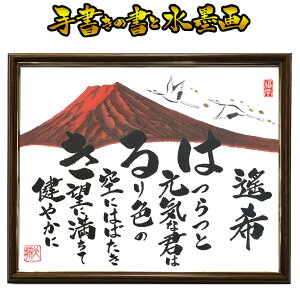 手書きの書と水墨画
遙希
はつらつと
元気な君は
るり色の
空にはばたき
きき望に満ちて
健やかに